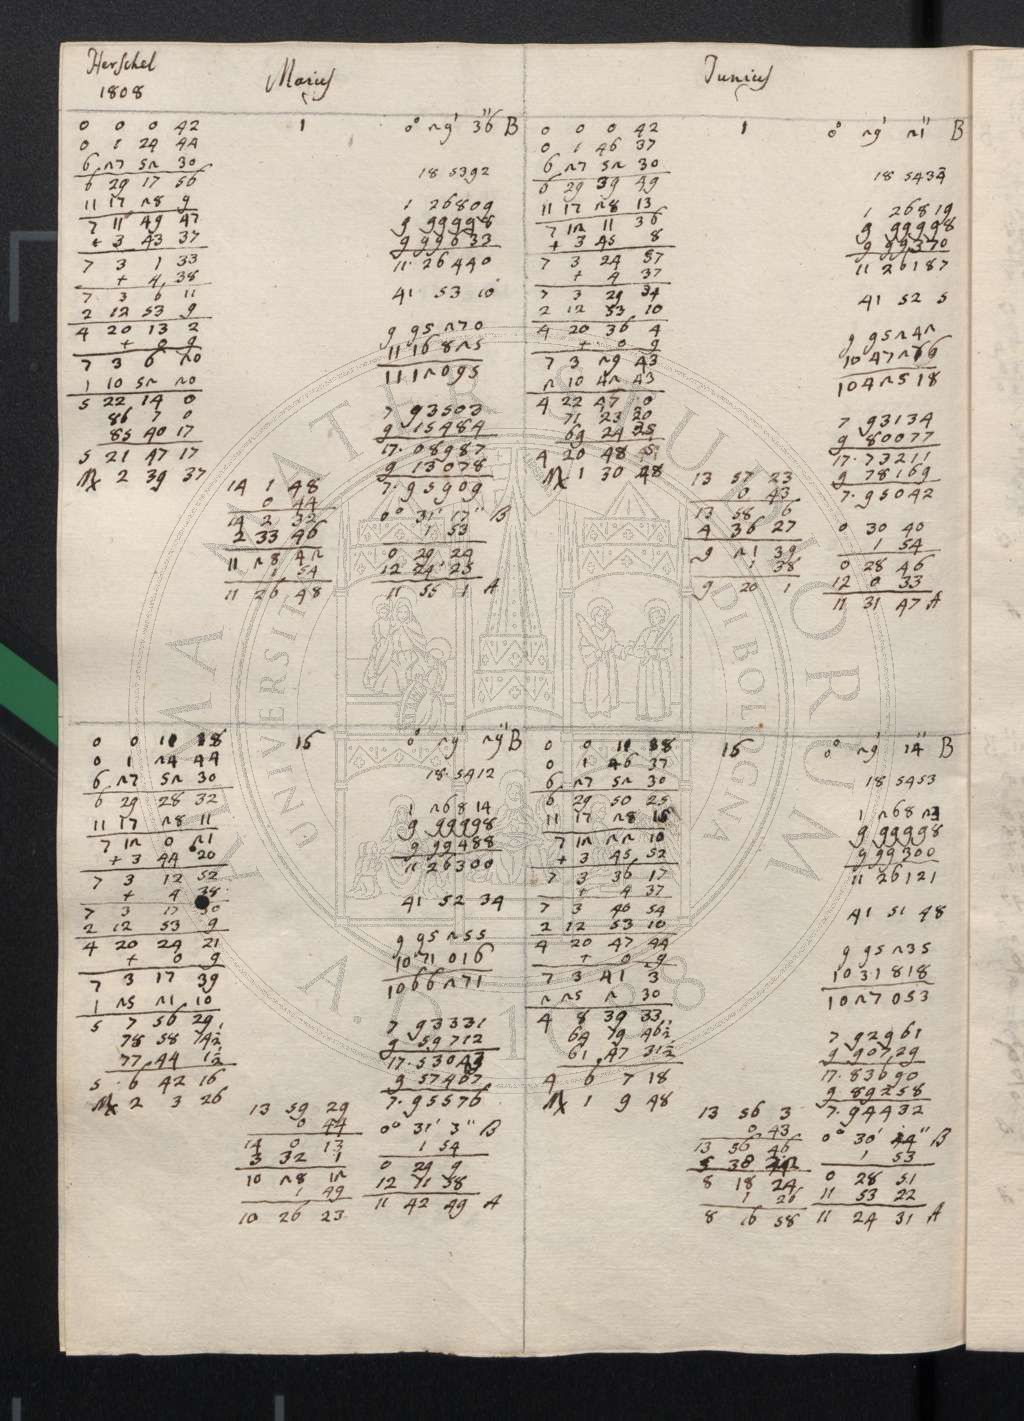 Herschel
1808
Maius
Junius
0 0 0 42
0 1 24 44
6 27 52 30
6 29 17 56
11 17 28 9
7 11 49 47
+ 3 43 37
7 3 1 33
+ 4 38
7 3 6 11
2 12 53 9
4 20 13 2
+ 0 9
7 3 6 20
1 10 52 20
5 22 14 0
86 7 0
85 40 17
5 21 47 17
2 39 37
1
14 1 48
0 44
14 2 32
2 33 46
11 28 42
1 54
11 26 48
0° 29' 36" B
18 5392
1 26809
9 99998
9 99633
11.26440
41 53 10
9 95270
11 16825
11 12095
7 93503
9 15484
17.08987
9 13078
7.95909
0° 31' 17" B
1 53
0 29 24
12 24 25
11 55 1 A
0 0 0 42
0 1 46 37
6 27 52 30
6 29 39 49
11 17 28 13
7 12 11 36
+ 3 45 8
7 3 24 57
+ 4 37
7 3 29 34
2 12 53 10
4 20 36 4
+ 0 9
7 3 29 43
2 10 42 43
4 22 47 0
71 23 20
69 24 25
4 20 48 5
1 30 48
1
13 57 23
0 43
13 58 6
4 36 27
9 21 39
1 38
9 20 1
0° 29' 21" B
18 5434
1 26819
9 99998
9 99370
11 26187
41 52 5
9 95242
10 47269
10 42518
7 93134
9 80077
17.73211
9 78169
7.95042
0 30 40
1 54
0 28 46
12 0 33
11 31 47 A
0 0 11 38
0 1 24 44
6 27 52 30
6 29 28 32
11 17 28 11
7 12 0 21
+ 3 44 20
7 3 12 52
+ 4 38
7 3 17 30
2 12 53 9
4 20 24 21
+ 0 9
7 3 17 39
1 25 21 10
5 7 56 29
78 58 14½
77 44 1½
5 6 42 16
2 3 26
15
13 59 29
0 44
14 0 13
3 32 1
10 28 12
1 49
10 26 23
0° 29' 29" B
18.5412
1 26814
9 99998
9 99488
11 26300
41 52 34
9 95255
10 71016
10 66271
7 93331
9 59712
17.53043
9 57467
7.95576
0° 31' 3" B
1 54
0 29 9
12 11 58
11 42 49 A
0 0 11 38
0 1 46 37
6 27 52 30
6 29 50 25
11 17 28 15
7 12 22 10
+ 3 45 52
7 3 36 17
+ 4 37
7 3 40 54
2 12 53 10
4 20 47 44
+ 0 9
7 3 41 3
2 25 2 30
4 8 39 33
64 19 46½
61 47 31½
4 6 7 18
1 9 48
15
13 56 3
0 43
13 56 46
5 38 22
8 18 24
1 26
8 16 58
0° 29' 14" B
18 5453
1 26823
9 99998
9 99300
11 26121
41 51 48
9 95235
10 31818
10 27053
7 92961
9 90729
17.83690
9 89258
7.94432
0° 30' 44" B
1 53
0 28 51
11 53 22
11 24 31 A
ALMA MATER STUDIORUM
UNIVERSITÀ DI BOLOGNA
A.D. 1088